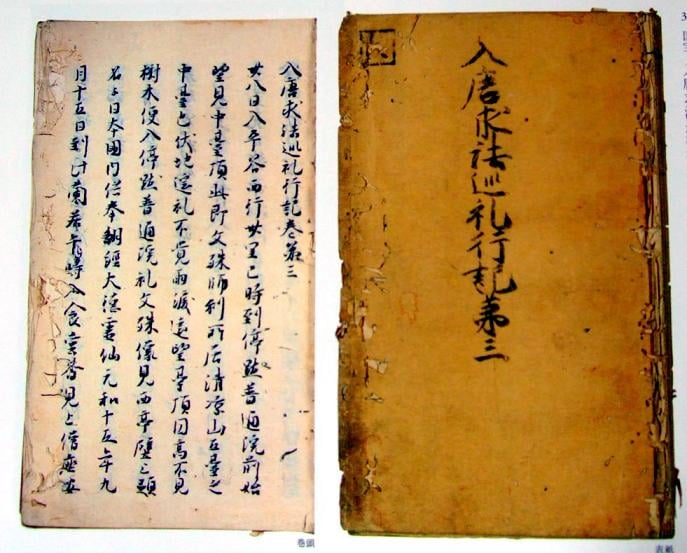 入唐求法巡礼行記第三
表紙
入唐求法巡礼行記卷第三
廿八日入平谷西行廿里巳時到停點普通院前始
望見中臺頂此即文殊師利所居清凉山五臺之
中臺也伏地遥礼不覺雨淚遥望臺頂圓高不見
樹木便入停點普通院礼文殊像見西亭壁上題
名云日本國内供奉翻經大德靈仙元和十五年九
月十五日到此蘭若 時入食堂齋見上僧座安
巻頭